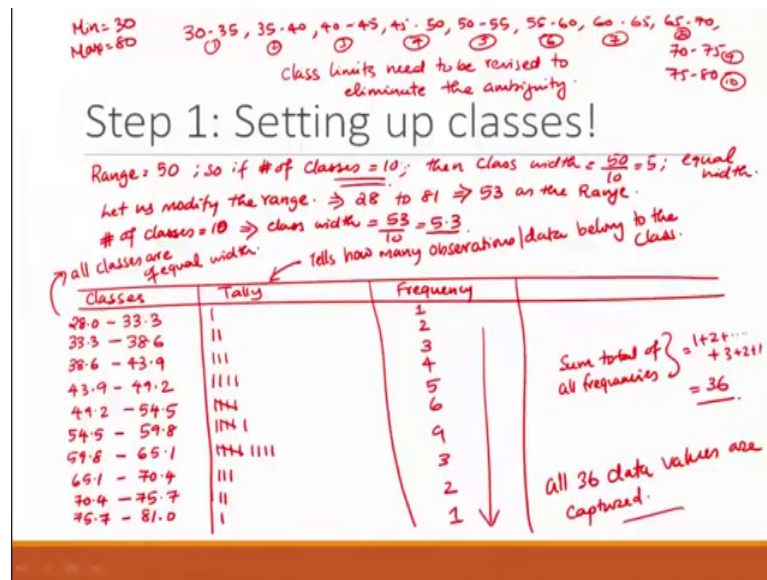 Min = 30
Max = 80
30-35, 35-40, 40-45, 45-50, 50-55, 55-60, 60-65, 65-70,
1 2 3 4 5 6 7 8
70-75 9
75-80 10
class limits need to be revised to
eliminate the ambiguity.
Step 1: Setting up classes!
Range = 50 ; so if # of Classes = 10; then class width = 50/10 = 5; equal
width.
Let us modify the range. ⇒ 28 to 81 ⇒ 53 as the Range.
# of classes = 10 ⇒ class width = 53/10 = 5.3
all classes are
of equal width.
tells how many observations/data belong to the
class.
Classes Tally Frequency
28.0 - 33.3 | 1
33.3 - 38.6 || 2
38.6 - 43.9 ||| 3
43.9 - 49.2 |||| 4
49.2 - 54.5 |||| 5
54.5 - 59.8 |||| | 6
59.8 - 65.1 |||| |||| 9
65.1 - 70.4 ||| 3
70.4 - 75.7 || 2
75.7 - 81.0 | 1
Sum total of
all frequencies } = 1+2+....
+3+2+1
= 36
all 36 data values are
captured.